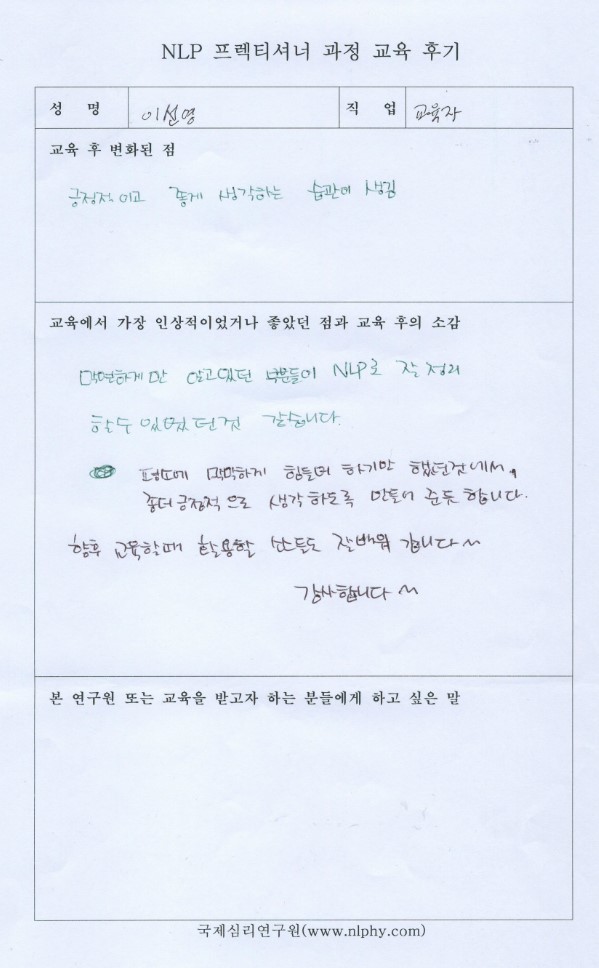 NLP 프렉티셔너 과정 교육 후기
성 명 이선영 직 업 교육자
교육 후 변화된 점
긍정적이고 좋게 생각하는 습관이 생김
교육에서 가장 인상적이었거나 좋았던 점과 교육 후의 소감
막연하게만 알고있던 부분들이 NLP로 잘 정리
할수 있었던것 같습니다.
막막하게 힘들어 하기만 했던것에서,
좀더 긍정적으로 생각하도록 만들어 준듯 합니다.
향후 교육할때 활용할 잘배워 갑니다~
감사합니다~
본 연구원 또는 교육을 받고자 하는 분들에게 하고 싶은 말
국제심리연구원(www.nlphy.com)